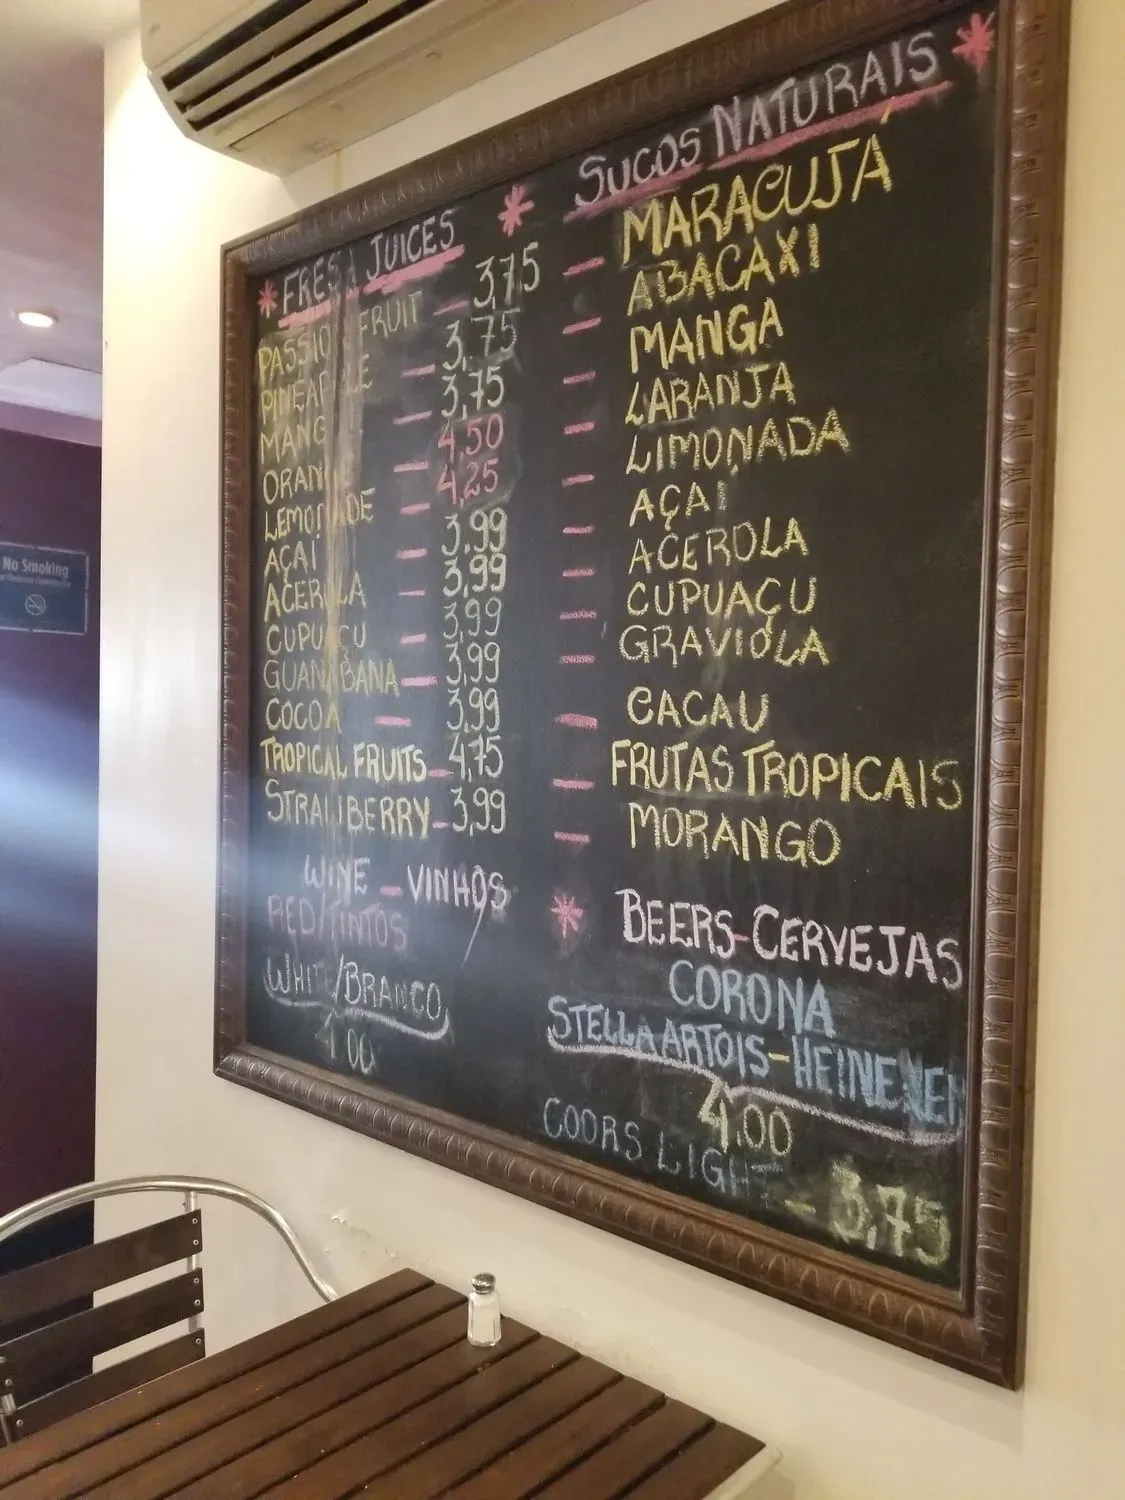 * FRESH JUICES *
PASSION FRUIT - 3,75
PINEAPPLE - 3,75
MANGO - 3,75
ORANGE - 4,50
LEMONADE - 4,25
AÇAÍ - 3,99
ACEROLA - 3,99
CUPUAÇU - 3,99
GUANABANA - 3,99
COCOA - 3,99
TROPICAL FRUITS - 4,75
STRAWBERRY - 3,99
WINE - VINHOS
RED/TINTOS
WHITE/BRANCO
SUCOS NATURAIS *
- MARACUJÁ
- ABACAXI
- MANGA
- LARANJA
- LIMONADA
- AÇAI
- ACEROLA
- CUPUAÇU
- GRAVIOLA
- CACAU
- FRUTAS TROPICAIS
- MORANGO
* BEERS-CERVEJAS
CORONA
STELLA ARTOIS-HEINENEN
4.00
COORS LIGHT - 3,75
No Smoking